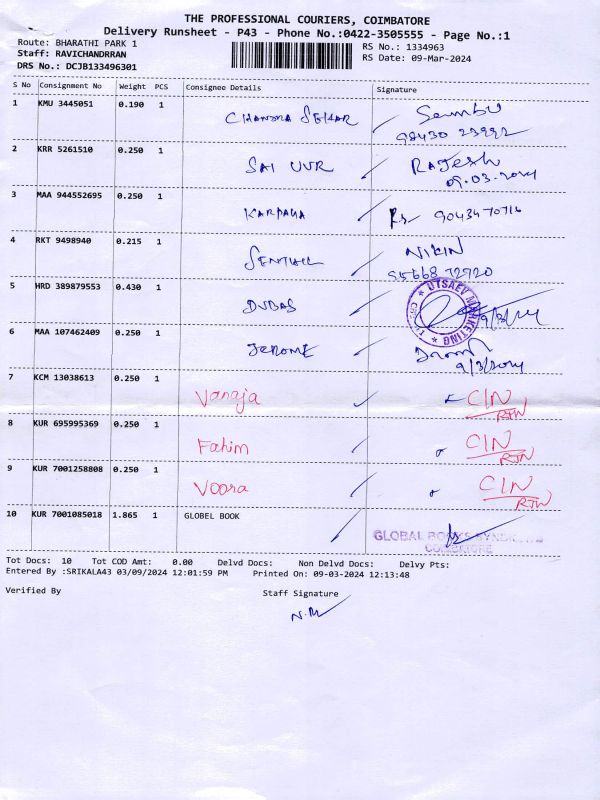 THE PROFESSIONAL COURIERS, COIMBATORE
Delivery Runsheet - P43 - Phone No.:0422-3505555 - Page No.:1
Route: BHARATHI PARK 1
RS No.: 1334963
Staff: RAVICHANDRRAN
RS Date: 09-Mar-2024
DRS No.: DCJB133496301
S No Consignment No Weight PCS Consignee Details Signature
1 KMU 3445051 0.190 1 CHANDRA SEKAR
2 KRR 5261510 0.250 1 SAI UUR Rajesh
09.03.2024
3 MAA 944552695 0.250 1 KARPAGA 9043470716
4 RKT 9498940 0.215 1 SENTHIL NIKIN
95668 72920
5 HRD 389879553 0.430 1 DUBAS UTSAEV MARKETING
6 MAA 107462409 0.250 1 JEROME
9/3/2024
7 KCM 13038613 0.250 1 Vanaja CIN
RTN
8 KUR 695995369 0.250 1 Fahim CIN
RTN
9 KUR 7001258808 0.250 1 Voora CIN
RTN
10 KUR 7001085018 1.865 1 GLOBEL BOOK GLOBAL
COIMBATORE
Tot Docs: 10 Tot COD Amt: 0.00 Delvd Docs: Non Delvd Docs: Delvy Pts:
Entered By :SRIKALA43 03/09/2024 12:01:59 PM Printed On: 09-03-2024 12:13:48
Verified By Staff Signature